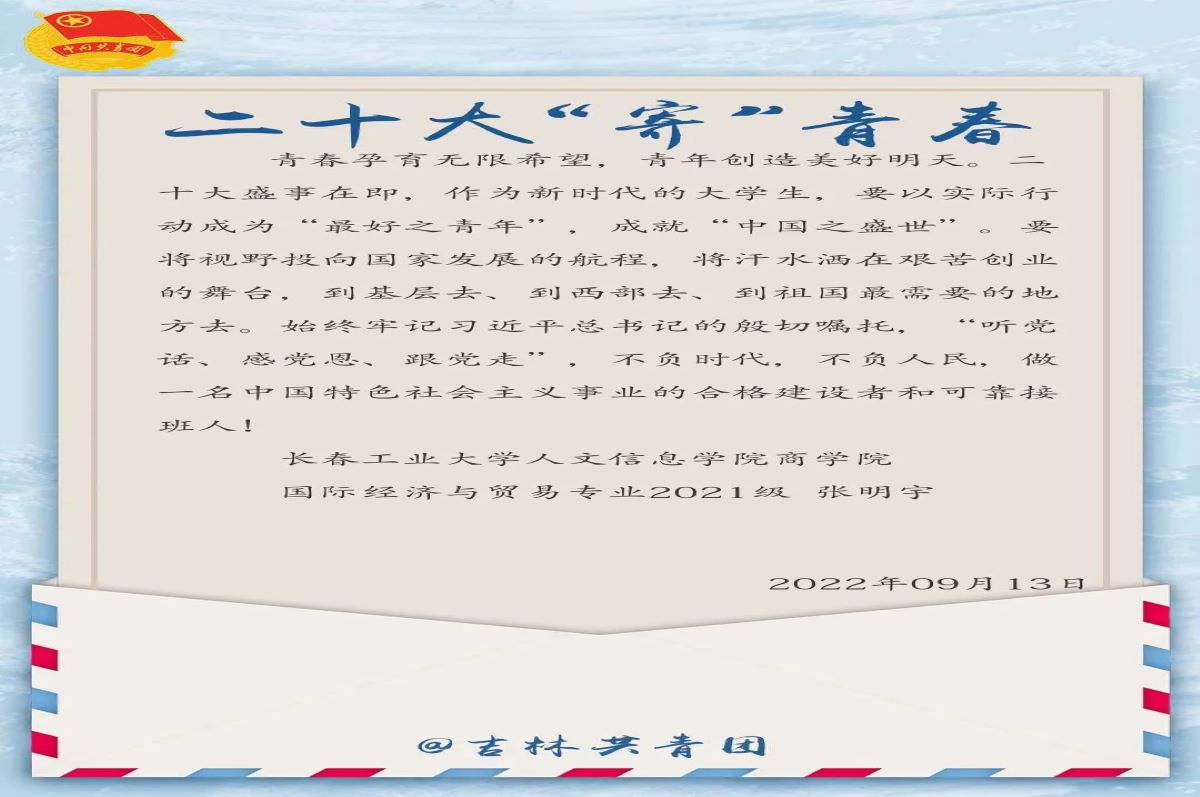 中国共青团
二十大“寄”青春
青春孕育无限希望，青年创造美好明天。二
十大盛事在即，作为新时代的大学生，要以实际行
动成为“最好之青年”，成就“中国之盛世”。要
将视野投向国家发展的航程，将汗水洒在艰苦创业
的舞台，到基层去、到西部去、到祖国最需要的地
方去。始终牢记习近平总书记的殷切嘱托，“听党
话、感党恩、跟党走”，不负时代，不负人民，做
一名中国特色社会主义事业的合格建设者和可靠接
班人！
长春工业大学人文信息学院商学院
国际经济与贸易专业2021级 张明宇
2022年09月13日
@吉林共青团